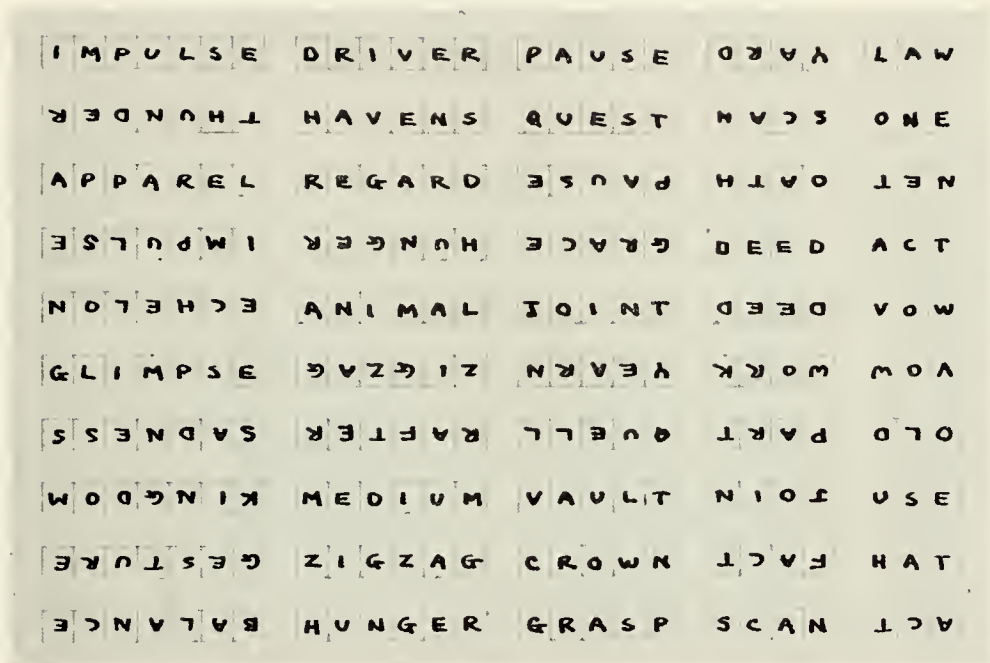 IMPULSE DRIVER PAUSE YARD LAW
THUNDER HAVENS QUEST SCAN ONE
APPAREL REGARD PAUSE OATH NET
IMPULSE HUNGER GRACE DEED ACT
ECHELON ANIMAL JOINT DEED VOW
GLIMPSE ZIGZAG YEARN WORK VOW
SADNESS RAFTER QUELL PART OLD
KINGDOM MEDIUM VAULT JOIN USE
GESTURE ZIGZAG CROWN FACT HAT
BALANCE HUNGER GRASP SCAN ACT